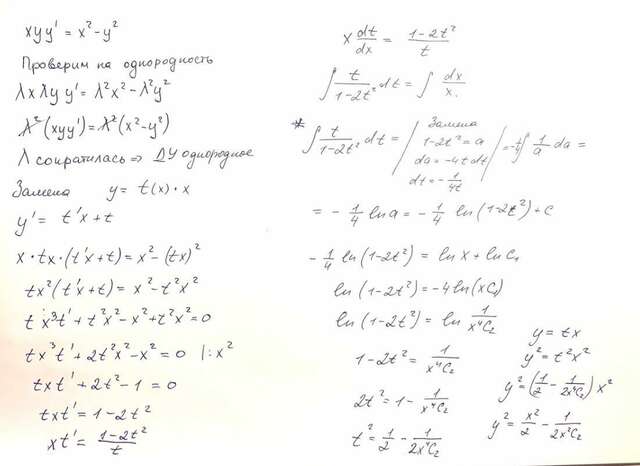 xyy' = x² - y²
Проверим на однородность
λx λy y' = λ²x² - λ²y²
λ²(xyy') = λ²(x² - y²)
λ сократилась ⇒ ДУ однородное
Замена y = t(x)·x
y' = t'x + t
x·tx·(t'x + t) = x² - (tx)²
tx²(t'x + t) = x² - t²x²
t x³t' + t²x² - x² + t²x² = 0
tx³t' + 2t²x² - x² = 0 |: x²
txt' + 2t² - 1 = 0
txt' = 1 - 2t²
xt' = (1 - 2t²)/t
x dt/dx = (1 - 2t²)/t
∫ t/(1 - 2t²) dt = ∫ dx/x.
* ∫ t/(1 - 2t²) dt = / Замена
1 - 2t² = a
da = -4t dt
dt = -1/4t / = -1/4 ∫ 1/a da =
= -1/4 ln a = -1/4 ln (1 - 2t²) + C
-1/4 ln (1 - 2t²) = ln x + ln C₁
ln (1 - 2t²) = -4 ln (xC₁)
ln (1 - 2t²) = ln 1/(x⁴C₂)
1 - 2t² = 1/(x⁴C₂)
2t² = 1 - 1/(x⁴C₂)
t² = 1/2 - 1/(2x⁴C₂)
y = tx
y² = t²x²
y² = (1/2 - 1/(2x⁴C₂)) x²
y² = x²/2 - 1/(2x²C₂)